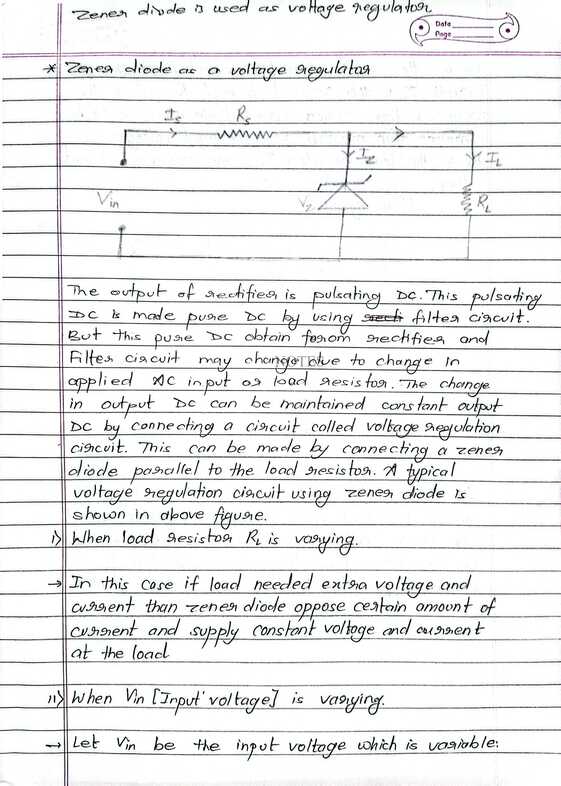 Zener diode is used as voltage regulator
Date
Page
* Zener diode as a voltage regulator
Is Rs
Iz IL
Vin Vz RL
The output of rectifier is pulsating DC. This pulsating
DC is made pure DC by using filter circuit.
But this pure DC obtain forom rectifier and
Filter circuit may change due to change in
applied AC input or load resistor. The change
in output DC can be maintained constant output
DC by connecting a circuit called voltage regulation
circuit. This can be made by connecting a zener
diode parallel to the load resistor. A typical
voltage regulation circuit using zener diode is
shown in above figure.
i) When load resistor RL is varying.
→ In this case if load needed extra voltage and
current than zener diode oppose certain amount of
current and supply constant voltage and current
at the load
ii) When Vin [Input voltage] is varying.
→ Let Vin be the input voltage which is variable: